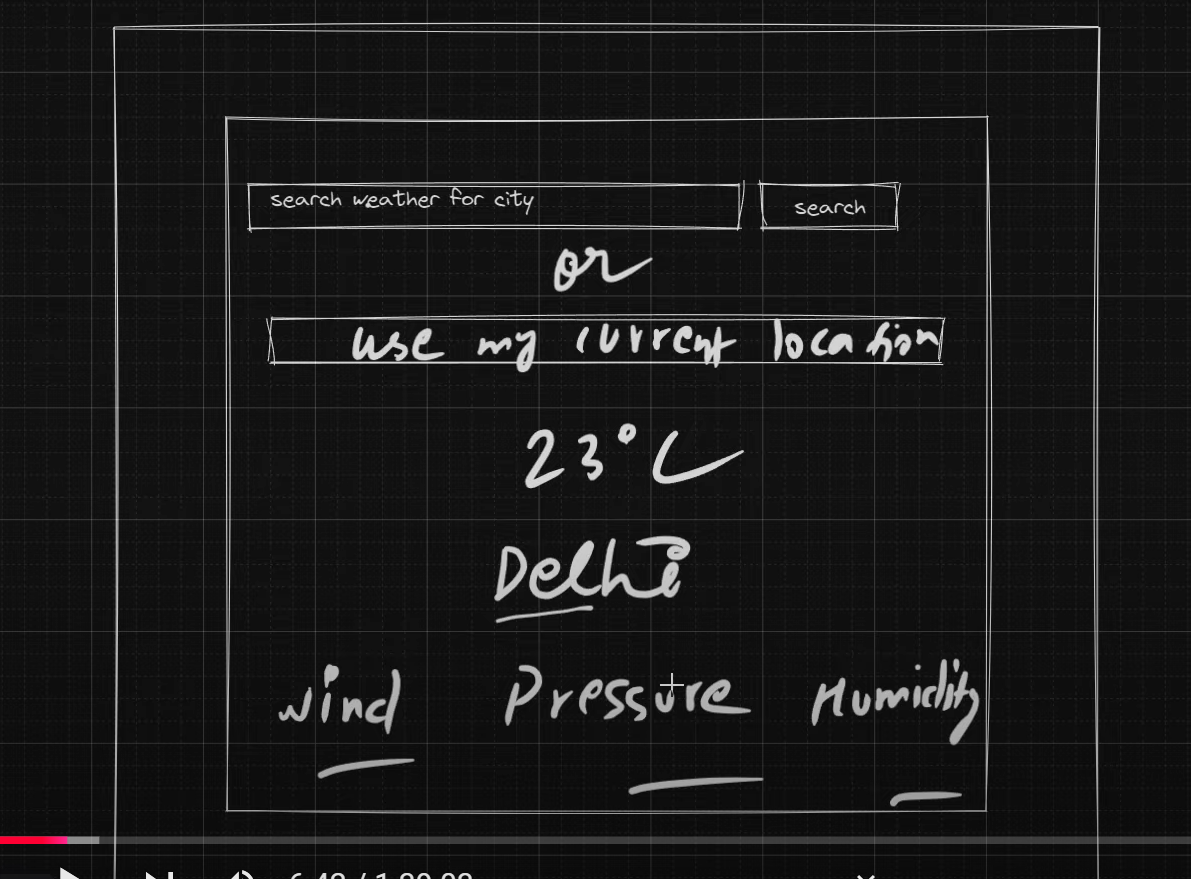 search weather for city
search
or
use my current location
23°C
Delhi
Wind Pressure Humidity